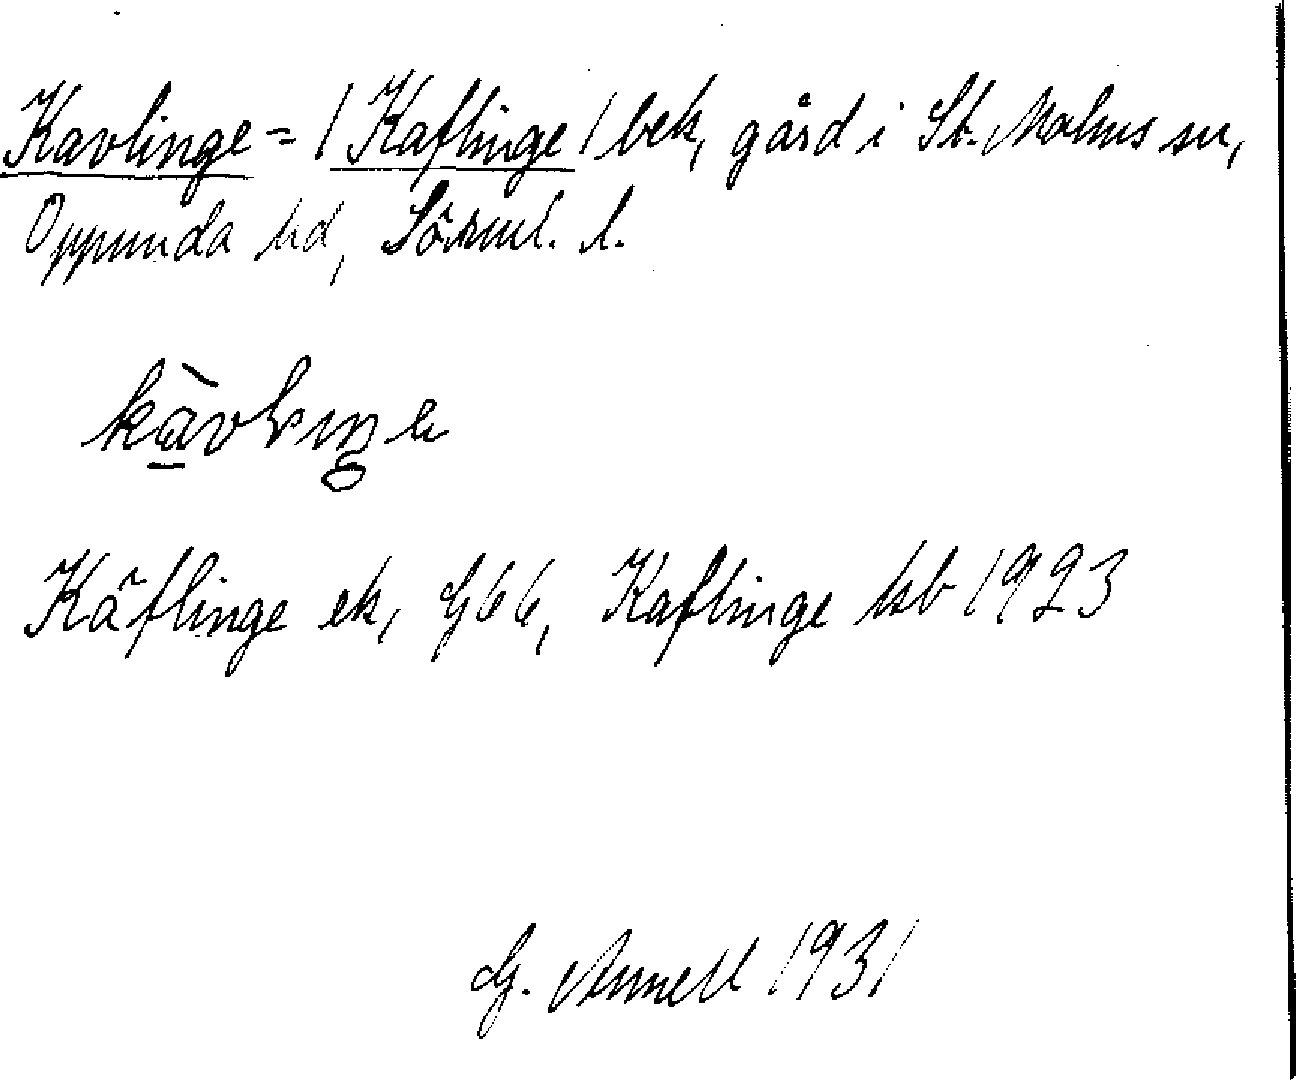 Kavlinge = / Kaflinge / bek, gård i St. Malms sn,
Oppunda hd, Sörml. l.
kàvlıŋe
Käflinge ek, G66, Kaflinge hb 1923
G. Annell 1931